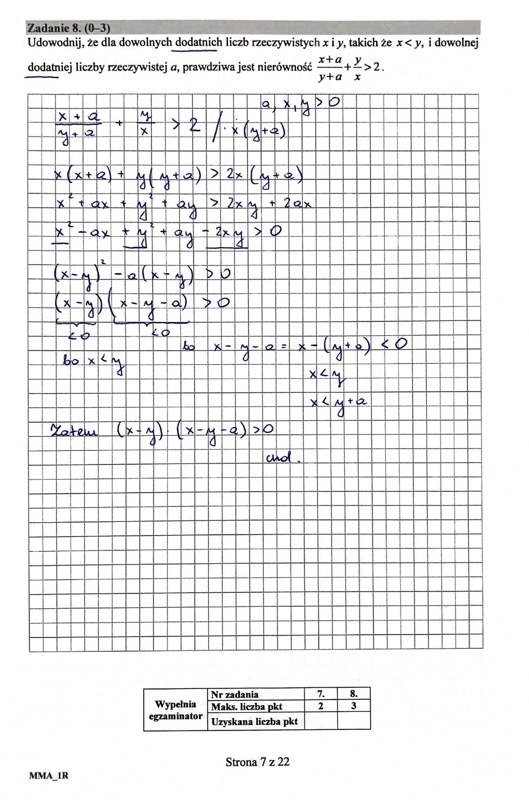 Zadanie 8. (0–3)
Udowodnij, że dla dowolnych dodatnich liczb rzeczywistych x i y, takich że x < y, i dowolnej
dodatniej liczby rzeczywistej a, prawdziwa jest nierówność (x+a)/(y+a) + y/x > 2.
a, x, y > 0
(x + a)/(y + a) + y/x > 2 / · x(y+a)
x(x+a) + y(y+a) > 2x(y+a)
x² + ax + y² + ay > 2xy + 2ax
x² − ax + y² + ay − 2xy > 0
(x−y)² − a(x−y) > 0
(x−y)(x−y−a) > 0
<0 <0
bo x<y
bo x − y − a = x − (y+a) < 0
x < y
x < y+a
Zatem (x−y)·(x−y−a) > 0
cnd.
Wypełnia egzaminator
Nr zadania 7. 8.
Maks. liczba pkt 2 3
Uzyskana liczba pkt
Strona 7 z 22
MMA_1R